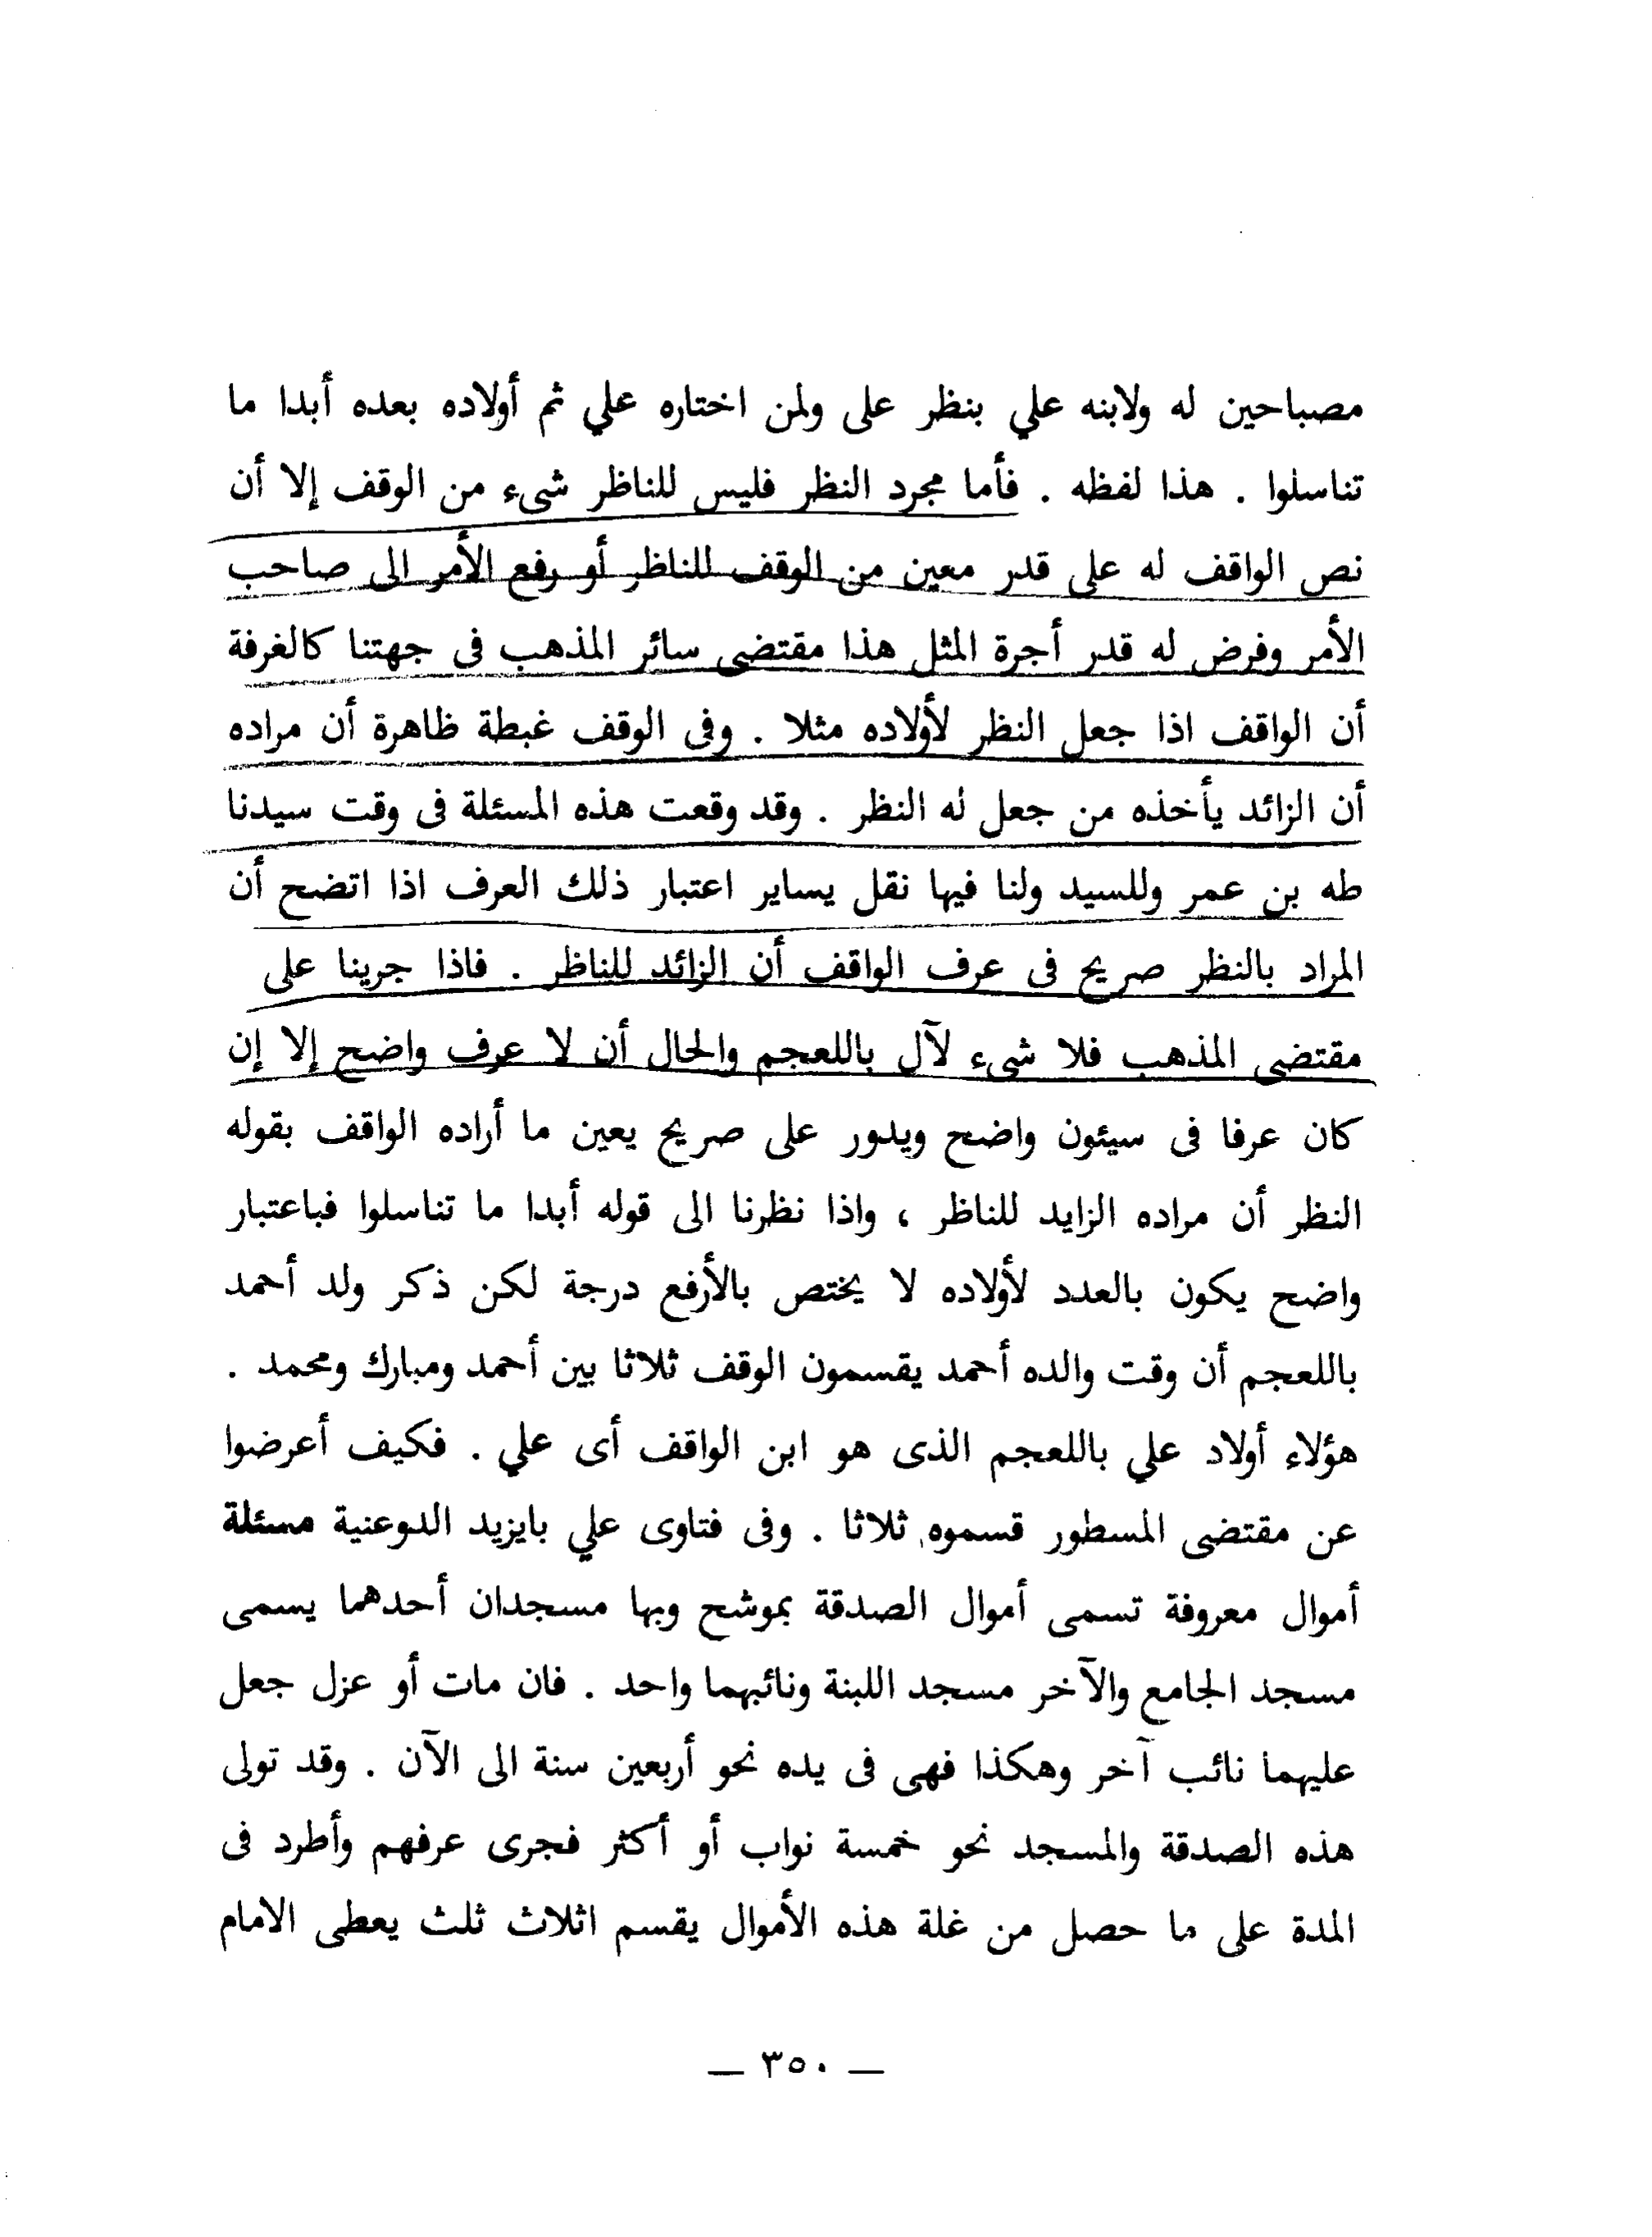 مصباحين له ولابنه علي بنظر على ولمن اختاره علي ثم أولاده بعده أبدا ما
تناسلوا . هذا لفظه . فأما مجرد النظر فليس للناظر شىء من الوقف إلا أن
نص الواقف له على قدر معين من الوقف للناظر أو رفع الأمر الى صاحب
الأمر وفرض له قدر أجرة المثل هذا مقتضى سائر المذهب فى جهتنا كالغرفة
أن الواقف اذا جعل النظر لأولاده مثلا . وفى الوقف غبطة ظاهرة أن مراده
أن الزائد يأخذه من جعل له النظر . وقد وقعت هذه المسئلة فى وقت سيدنا
طه بن عمر وللسيد ولنا فيها نقل يساير اعتبار ذلك العرف اذا اتضح أن
المراد بالنظر صريح فى عرف الواقف أن الزائد للناظر . فاذا جرينا على
مقتضى المذهب فلا شىء لآل باللعجم والحال أن لا عرف واضح إلا إن
كان عرفا فى سيئون واضح ويدور على صريح يعين ما أراده الواقف بقوله
النظر أن مراده الزايد للناظر ، واذا نظرنا الى قوله أبدا ما تناسلوا فباعتبار
واضح يكون بالعدد لأولاده لا يختص بالأرفع درجة لكن ذكر ولد أحمد
باللعجم أن وقت والده أحمد يقسمون الوقف ثلاثا بين أحمد ومبارك ومحمد .
هؤلاء أولاد علي باللعجم الذى هو ابن الواقف أى علي . فكيف أعرضوا
عن مقتضى المسطور قسموه ثلاثا . وفى فتاوى علي بايزيد الدوعنية مسئلة
أموال معروفة تسمى أموال الصدقة بموشح وبها مسجدان أحدهما يسمى
مسجد الجامع والآخر مسجد اللبنة ونائبهما واحد . فان مات أو عزل جعل
عليهما نائب آخر وهكذا فهى فى يده نحو أربعين سنة الى الآن . وقد تولى
هذه الصدقة والمسجد نحو خمسة نواب أو أكثر فجرى عرفهم وأطرد فى
المدة على ما حصل من غلة هذه الأموال يقسم اثلاث ثلث يعطى الامام
— ٣٥٠ —